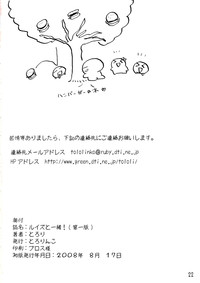 ハンバーガーの木
ございましたら、下記の連絡先にご連絡お願いします。
連絡先メールアドレス tololinko@ruby.dti.ne.jp
HPアドレス http://www.green.dti.ne.jp/tololi/
発行
誌名：ルイズと一緒！(第一版)
著者：とろり
発行：とろりんこ
印刷：プロス様
初版発行年月日：2008年 8月 17日
22